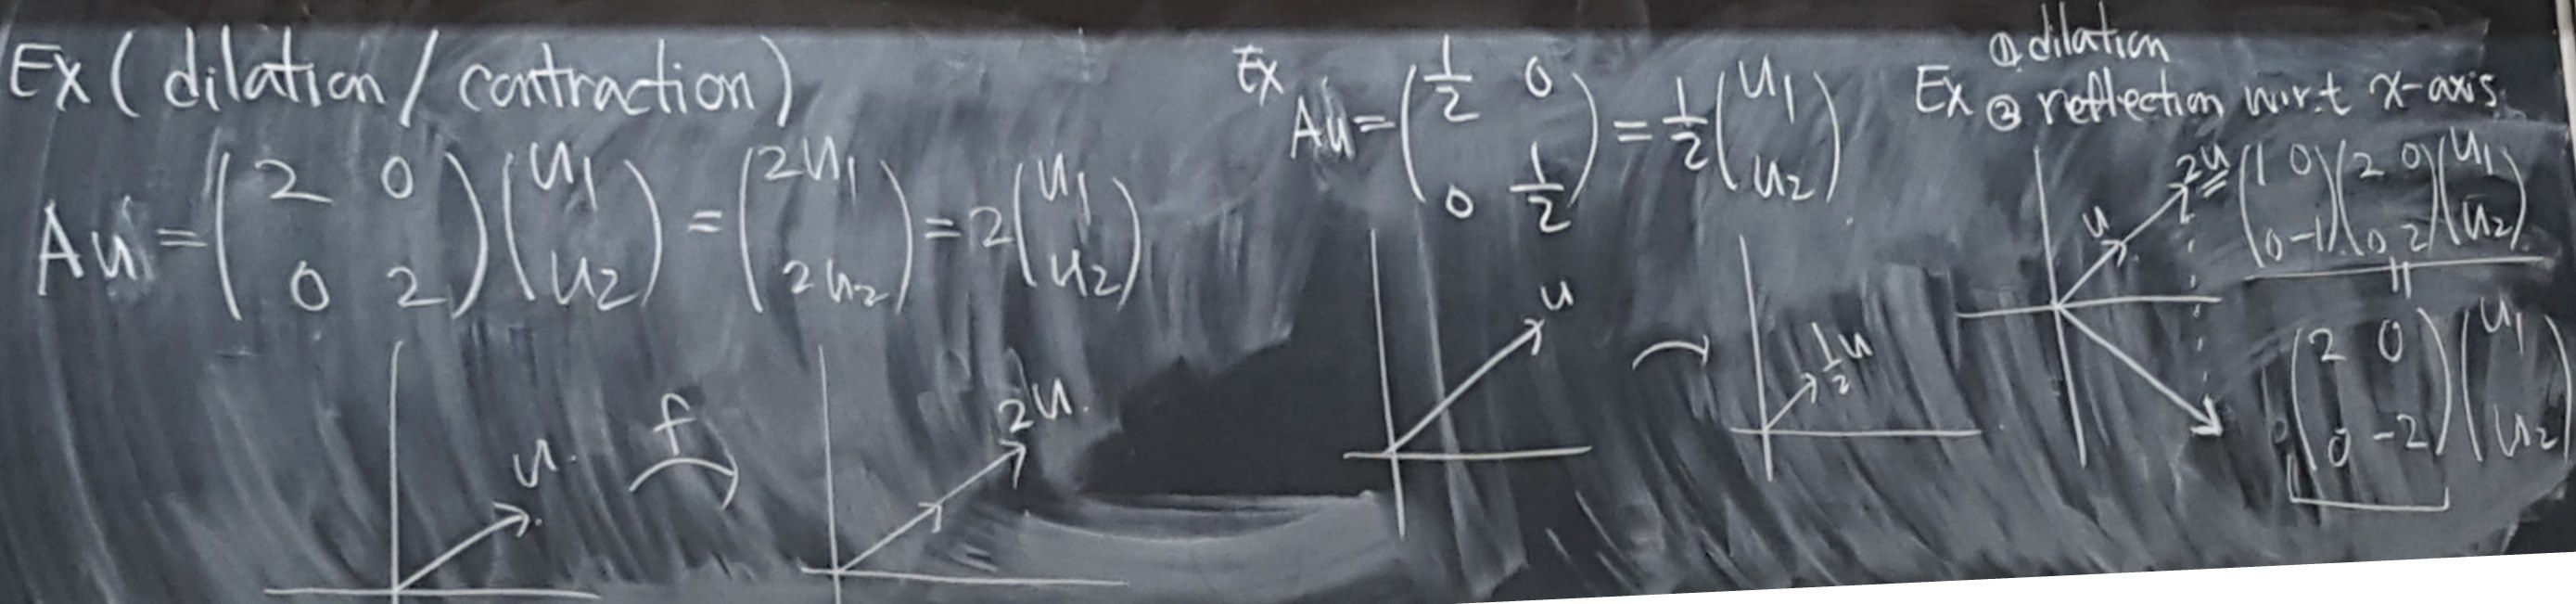 Ex (dilation / contraction)
Au = (2 0 0 2) (u1 u2) = (2u1 2u2) = 2 (u1 u2)
u.
f
2u.
Ex
Au = (1/2 0 0 1/2) = 1/2 (u1 u2)
u
1/2 u
① dilation
Ex ② reflection w.r.t x-axis.
u
2u
(1 0 0 -1) (2 0 0 2) (u1 u2)
||
(2 0 0 -2) (u1 u2)